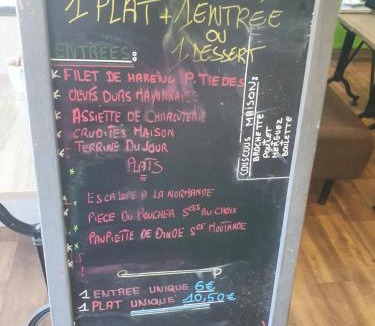 1 PLAT + 1 ENTRÉE
OU
1 DESSERT
ENTRÉES:
FILET DE HARENG P. TIEDES
OEUFS DURS MAYONNAISE
ASSIETTE DE CHARCUTERIE
CRUDITÉS MAISON
TERRINE DU JOUR
PLATS
ESCALOPE A LA NORMANDE
PIECE DU BOUCHER SCES AU CHOIX
PAUPIETTE DE DINDE SCE MOUTARDE
1 ENTREE UNIQUE 6€
1 PLAT UNIQUE 10,50€
COUSCOUS MAISON:
BROCHETTE
POULET
MERGUEZ
BOULETTE